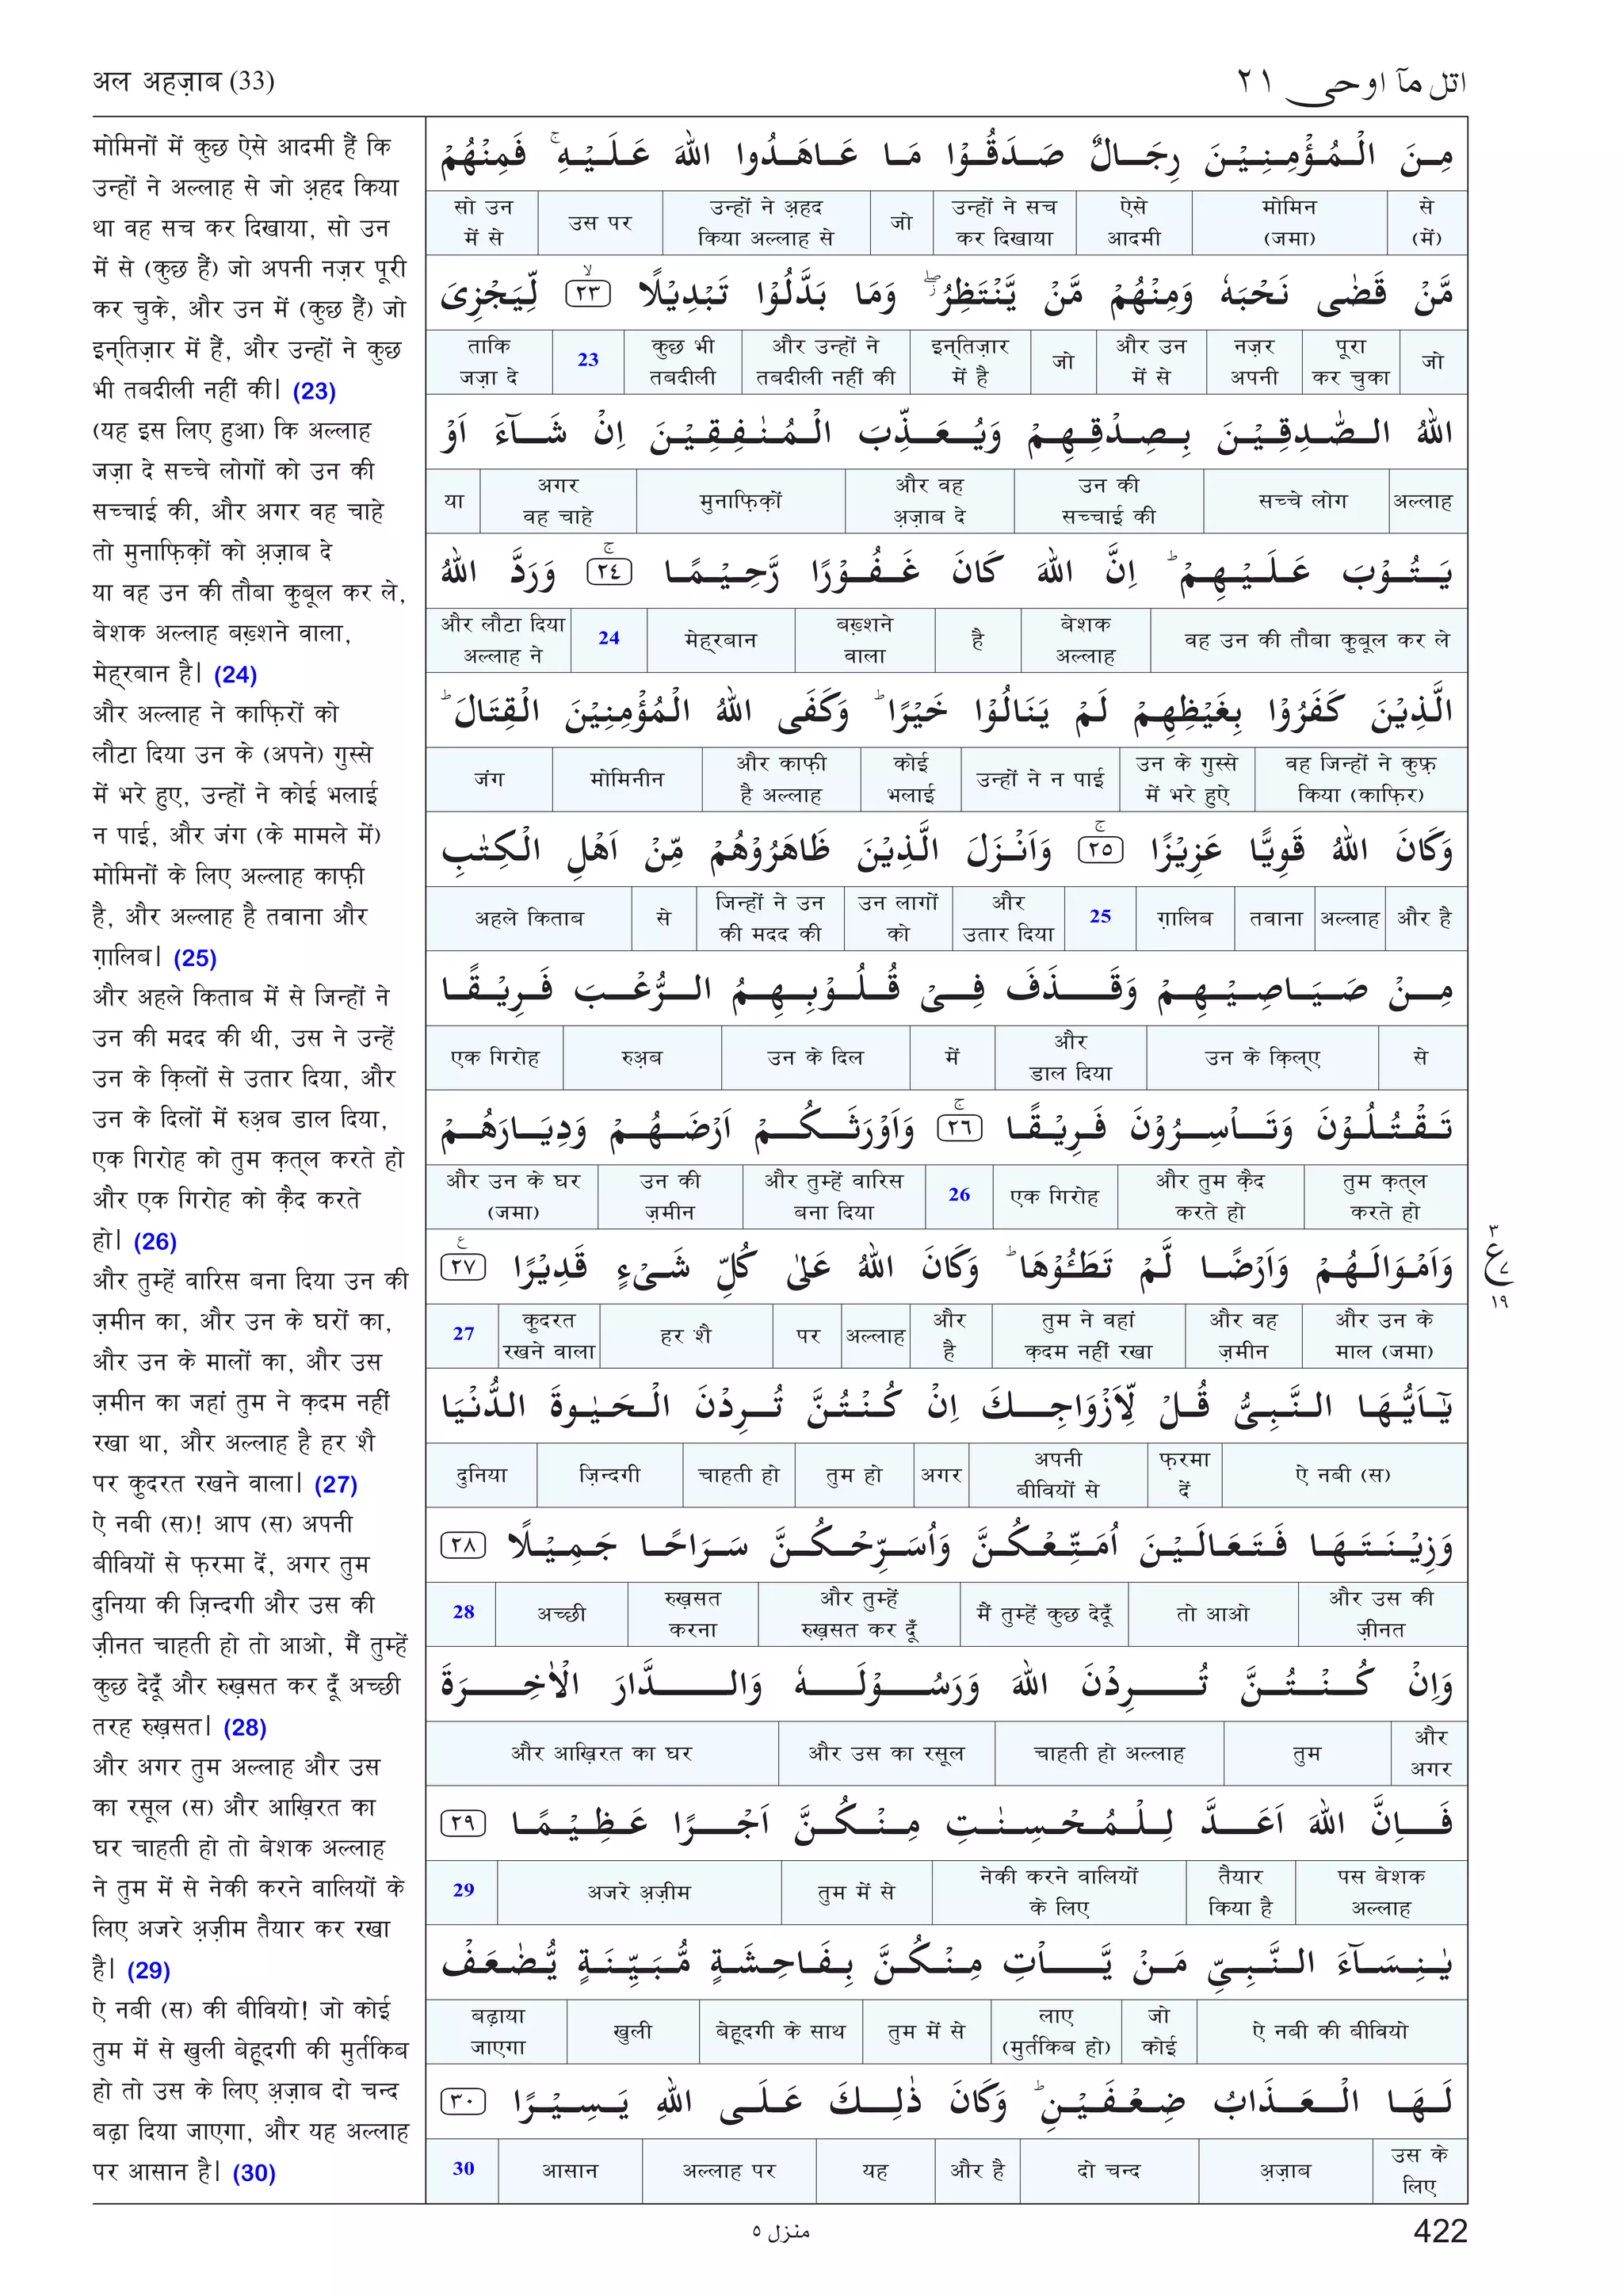 अल अहज़ाब (33)
اتل مآ اوحی ٢١
मोमिनों में कुछ ऐसे आदमी हैं कि
उन्हों ने अल्लाह से जो अ़हद किया
था वह सच कर दिखाया, सो उन
में से (कुछ हैं) जो अपनी नज़र पूरी
कर चुके, और उन में (कुछ हैं) जो
इन्‌तिज़ार में हैं, और उन्हों ने कुछ
भी तबदीली नहीं की| (23)
(यह इस लिए हुआ) कि अल्लाह
जज़ा दे सच्चे लोगों को उन की
सच्चाई की, और अगर वह चाहे
तो मुनाफ़िक़ों को अ़ज़ाब दे
या वह उन की तौबा कु़बूल कर ले,
बेशक अल्लाह बख़्शने वाला,
मेह्‌रबान है| (24)
और अल्लाह ने काफ़िरों को
लौटा दिया उन के (अपने) गुस्से
में भरे हुए, उन्हों ने कोई भलाई
न पाई, और जंग (के मामले में)
मोमिनों के लिए अल्लाह काफ़ी
है, और अल्लाह है तवाना और
ग़ालिब| (25)
और अहले किताब में से जिन्हों ने
उन की मदद की थी, उस ने उन्हें
उन के क़िलों से उतार दिया, और
उन के दिलों में रुअ़ब डाल दिया,
एक गिरोह को तुम क़त्‌ल करते हो
और एक गिरोह को क़ैद करते
हो| (26)
और तुम्हें वारिस बना दिया उन की
ज़मीन का, और उन के घरों का,
और उन के मालों का, और उस
ज़मीन का जहां तुम ने क़दम नहीं
रखा था, और अल्लाह है हर शै
पर कु़दरत रखने वाला| (27)
ऐ नबी (स)! आप (स) अपनी
बीवियों से फ़रमा दें, अगर तुम
दुनिया की ज़िन्दगी और उस की
ज़ीनत चाहती हो तो आओ, मैं तुम्हें
कुछ देदूँ और रुख़सत कर दूँ अच्छी
तरह रुख़सत| (28)
और अगर तुम अल्लाह और उस
का रसूल (स) और आख़िरत का
घर चाहती हो तो बेशक अल्लाह
ने तुम में से नेकी करने वालियों के
लिए अजरे अ़ज़ीम तैयार कर रखा
है| (29)
ऐ नबी (स) की बीवियो! जो कोई
तुम में से खुली बेहूदगी की मुर्तकिब
हो तो उस के लिए अ़ज़ाब दो चन्द
बढ़ा दिया जाएगा, और यह अल्लाह
पर आसान है| (30)
مِنَ الْمُؤْمِنِيْنَ رِجَالٌ صَدَقُوْا مَا عَاهَدُوا اللهَ عَلَيْهِ ۚ فَمِنْهُمْ
से (में) मोमिन (जमा) ऐसे आदमी उन्हों ने सच कर दिखाया जो उन्हों ने अ़हद किया अल्लाह से उस पर सो उन में से
مَّنْ قَضٰى نَحْبَهٗ وَمِنْهُمْ مَّنْ يَّنْتَظِرُ ۖ وَمَا بَدَّلُوْا تَبْدِيْلًا ﴿٢٣﴾ لِّيَجْزِىَ
जो पूरा कर चुका नज़र अपनी और उन में से जो इन्‌तिज़ार में है और उन्हों ने तबदीली नहीं की कुछ भी तबदीली 23 ताकि जज़ा दे
اللهُ الصّٰدِقِيْنَ بِصِدْقِهِمْ وَيُعَذِّبَ الْمُنٰفِقِيْنَ اِنْ شَآءَ اَوْ
अल्लाह सच्चे लोग उन की सच्चाई की और वह अ़ज़ाब दे मुनाफ़िक़ों अगर वह चाहे या
يَتُوْبَ عَلَيْهِمْ ؕ اِنَّ اللهَ كَانَ غَفُوْرًا رَّحِيْمًا ﴿٢٤﴾ وَرَدَّ اللهُ
वह उन की तौबा कु़बूल कर ले बेशक अल्लाह है बख़्शने वाला मेह्‌रबान 24 और लौटा दिया अल्लाह ने
الَّذِيْنَ كَفَرُوْا بِغَيْظِهِمْ لَمْ يَنَالُوْا خَيْرًا ؕ وَكَفَى اللهُ الْمُؤْمِنِيْنَ الْقِتَالَ ؕ
वह जिन्हों ने कुफ़्र किया (काफ़िर) उन के गुस्से में भरे हुऐ उन्हों ने न पाई कोई भलाई और काफ़ी है अल्लाह मोमिनीन जंग
وَكَانَ اللهُ قَوِيًّا عَزِيْزًا ﴿٢٥﴾ وَاَنْزَلَ الَّذِيْنَ ظَاهَرُوْهُمْ مِّنْ اَهْلِ الْكِتٰبِ
और है अल्लाह तवाना ग़ालिब 25 और उतार दिया उन लागों को जिन्हों ने उन की मदद की से अहले किताब
مِنْ صَيَاصِيْهِمْ وَقَذَفَ فِىْ قُلُوْبِهِمُ الرُّعْبَ فَرِيْقًا
से उन के क़िल्‌ए और डाल दिया में उन के दिल रुअ़ब एक गिरोह
تَقْتُلُوْنَ وَتَأْسِرُوْنَ فَرِيْقًا ﴿٢٦﴾ وَاَوْرَثَكُمْ اَرْضَهُمْ وَدِيَارَهُمْ
तुम क़त्‌ल करते हो और तुम क़ैद करते हो एक गिरोह 26 और तुम्हें वारिस बना दिया उन की ज़मीन और उन के घर (जमा)
وَاَمْوَالَهُمْ وَاَرْضًا لَّمْ تَطَـُٔوْهَا ؕ وَكَانَ اللهُ عَلٰى كُلِّ شَىْءٍ قَدِيْرًا ﴿٢٧﴾
और उन के माल (जमा) और वह ज़मीन तुम ने वहां क़दम नहीं रखा और है अल्लाह पर हर शै कु़दरत रखने वाला 27
٣ ع ٧ ١٩
يٰٓاَيُّهَا النَّبِىُّ قُلْ لِّاَزْوَاجِكَ اِنْ كُنْتُنَّ تُرِدْنَ الْحَيٰوةَ الدُّنْيَا
ऐ नबी (स) फ़रमा दें अपनी बीवियों से अगर तुम हो चाहती हो ज़िन्दगी दुनिया
وَزِيْنَتَهَا فَتَعَالَيْنَ اُمَتِّعْكُنَّ وَاُسَرِّحْكُنَّ سَرَاحًا جَمِيْلًا ﴿٢٨﴾
और उस की ज़ीनत तो आओ मैं तुम्हें कुछ देदूँ और तुम्हें रुख़सत कर दूँ रुख़सत करना अच्छी 28
وَاِنْ كُنْتُنَّ تُرِدْنَ اللهَ وَرَسُوْلَهٗ وَالدَّارَ الْاٰخِرَةَ
और अगर तुम चाहती हो अल्लाह और उस का रसूल और आख़िरत का घर
فَاِنَّ اللهَ اَعَدَّ لِلْمُحْسِنٰتِ مِنْكُنَّ اَجْرًا عَظِيْمًا ﴿٢٩﴾
पस बेशक अल्लाह तैयार किया है नेकी करने वालियों के लिए तुम में से अजरे अ़ज़ीम 29
يٰنِسَآءَ النَّبِىِّ مَنْ يَّأْتِ مِنْكُنَّ بِفَاحِشَةٍ مُّبَيِّنَةٍ يُّضٰعَفْ
ऐ नबी की बीवियो जो कोई लाए (मुर्तकिब हो) तुम में से बेहूदगी के साथ खुली बढ़ाया जाएगा
لَهَا الْعَذَابُ ضِعْفَيْنِ ؕ وَكَانَ ذٰلِكَ عَلَى اللهِ يَسِيْرًا ﴿٣٠﴾
उस के लिए अ़ज़ाब दो चन्द और है यह अल्लाह पर आसान 30
منزل ٥
422